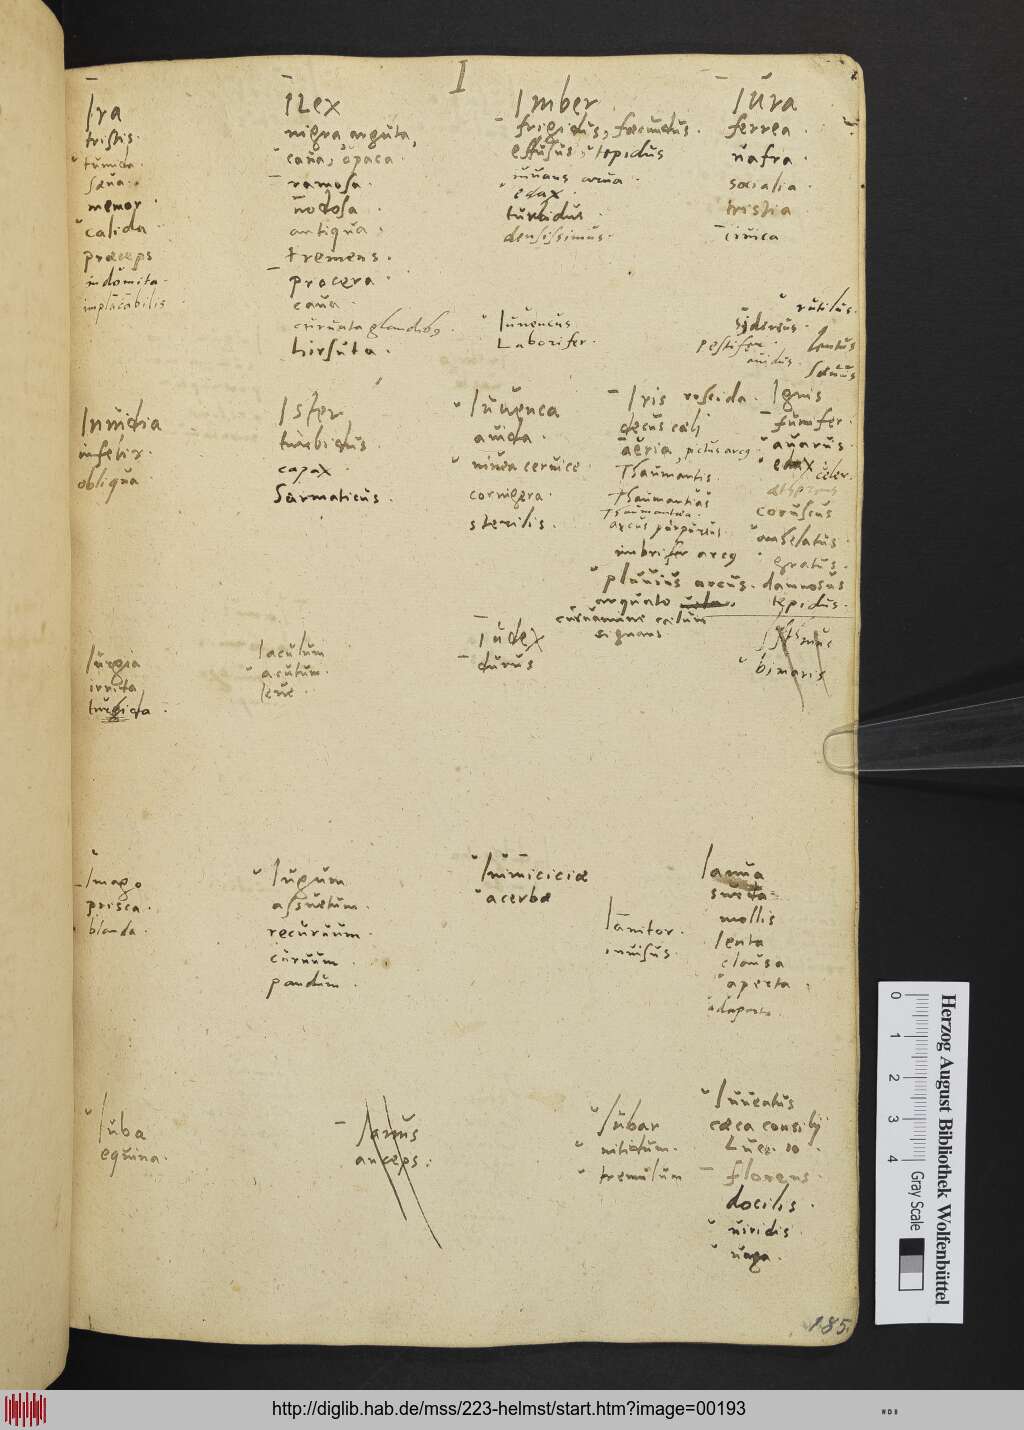 I
Ira
tristis.
tumida.
sæua.
memor.
calida.
præceps
indomita.
implacabilis
Ilex
nigra, arguta,
caua, opaca.
ramosa.
nodosa.
antiqua.
tremens.
procera.
caua.
curuata glandibus.
hirsuta.
Imber
frigidus, fœcundus.
effusus, tepidus
edax.
turbidus.
densissimus.
Iura
ferrea.
uafra.
socialia.
tristia
ciuica
Iuuencus
Laborifer.
rutilus.
sydereus.
pestifer. lentus
auidus. sæuus
Inuidia
infelix.
obliqua.
Ister
turbidus
capax.
Sarmaticus.
Iuuenca
auida.
niuea ceruice.
cornigera.
sterilis.
Iris roscida.
decus cœli
aëria,
Thaumantis.
Thaumantias
Thaumantea.
arcus purpureus.
imbrifer arcus
pluuius arcus.
arquato
curuamine cœlum
signans
Ignis
fumifer.
auarus.
edax celer.
coruscus
anhelatus.
gratus.
damnosus
tepidus.
Isthmus
bimaris
Iurgia
irrita
turbida.
Iaculum
acutum.
leue.
Iudex
durus
Imago
prisca.
blanda.
Iugum
assuetum.
recuruum.
curuum.
pandum.
Inimiciciæ
acerbæ
Ianitor.
inuisus.
Ianua
sueta
mollis
lenta
clausa
aperta.
adaperta
Iuba
equina.
Ianus
anceps:
Iubar
nitidum.
tremulum
Iuuentus
cæca consilij
Luc. 10.
florens.
docilis.
uiridis
uaga.
185.
Herzog August Bibliothek Wolfenbüttel
0 1 2 3 4
Gray Scale
http://diglib.hab.de/mss/223-helmst/start.htm?image=00193